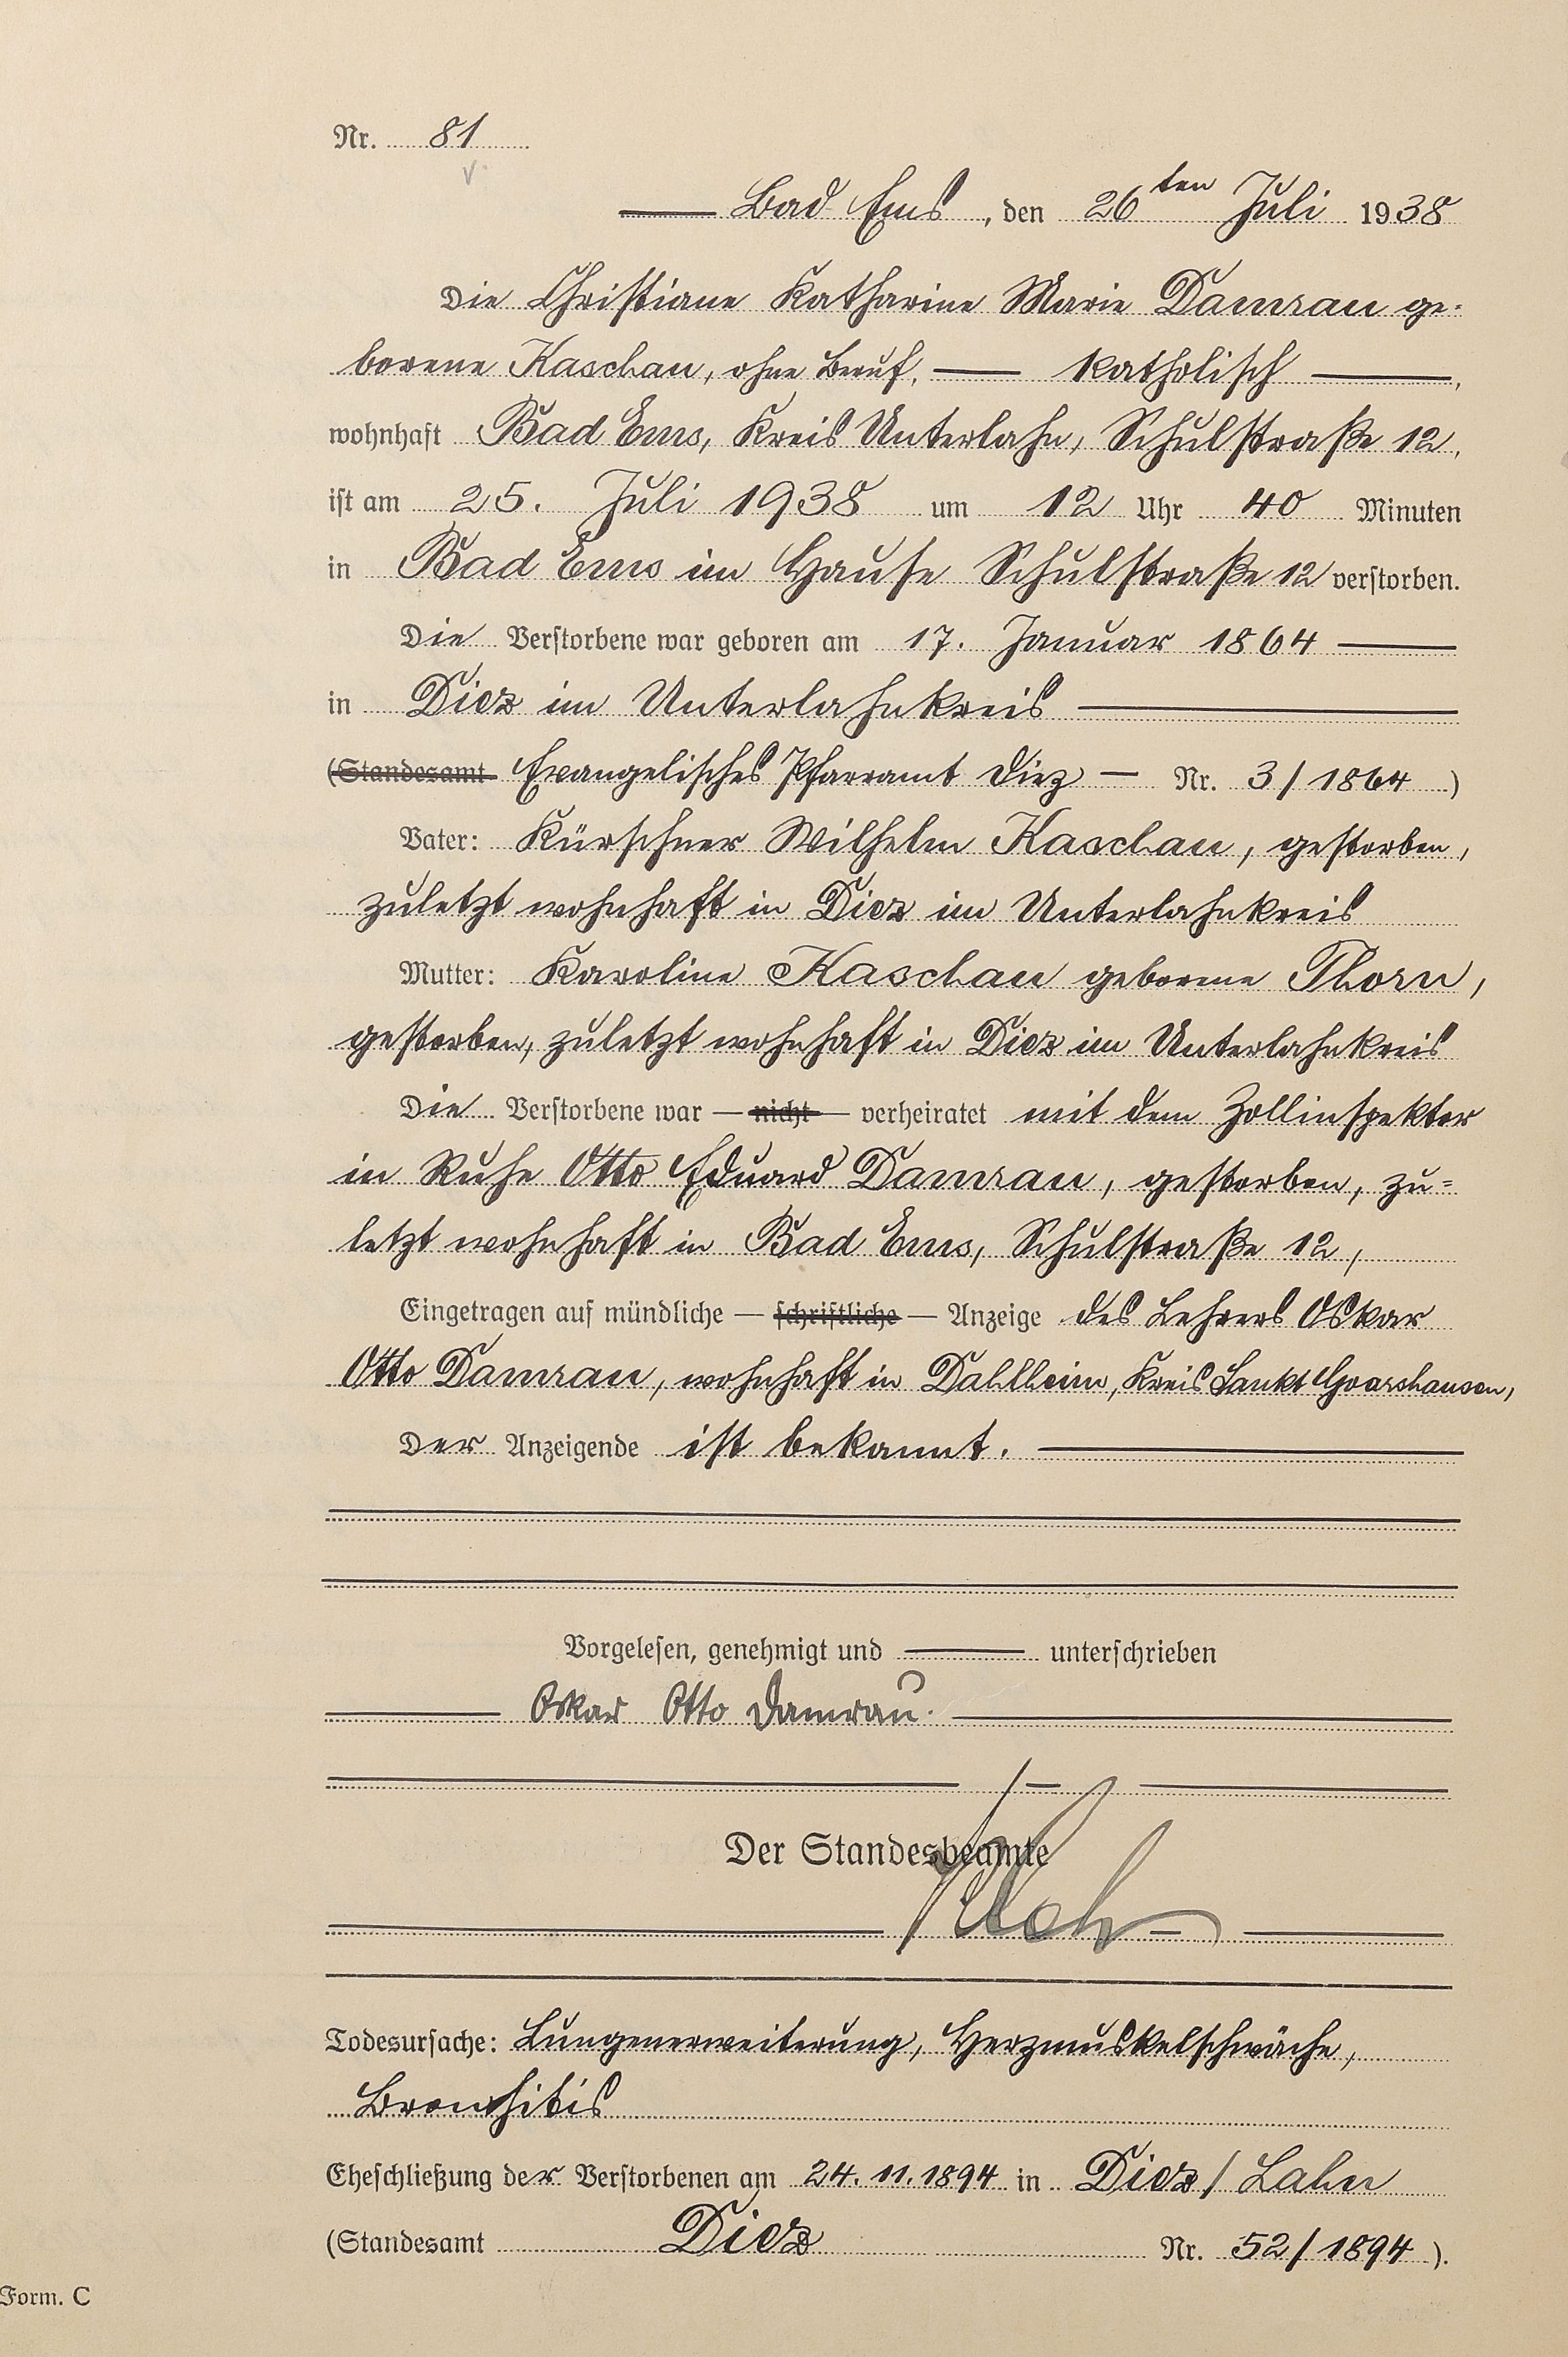 Nr. 81
Bad Ems, den 26ten Juli 1938
Die Christiane Katharine Marie Damrau ge-
borene Kaschau, ohne Beruf, — katholisch —,
wohnhaft Bad Ems, Kreis Unterlahn, Schulstraße 12,
ist am 25. Juli 1938 um 12 Uhr 40 Minuten
in Bad Ems im Hause Schulstraße 12 verstorben.
Die Verstorbene war geboren am 17. Januar 1864 —
in Diez im Unterlahnkreis —
(Standesamt Evangelisches Pfarramt Diez — Nr. 3/1864)
Vater: Kürschner Wilhelm Kaschau, gestorben,
zuletzt wohnhaft in Diez im Unterlahnkreis
Mutter: Karoline Kaschau geborene Thorn,
gestorben, zuletzt wohnhaft in Diez im Unterlahnkreis
Die Verstorbene war — nicht — verheiratet mit dem Zollinspektor
in Ruhe Otto Eduard Damrau, gestorben, zu=
letzt wohnhaft in Bad Ems, Schulstraße 12,
Eingetragen auf mündliche — schriftliche — Anzeige des Lehrers Oskar
Otto Damrau, wohnhaft in Dahlheim, Kreis Sankt Goarshausen,
Der Anzeigende ist bekannt. —
Vorgelesen, genehmigt und — unterschrieben
Oskar Otto Damrau.
Der Standesbeamte
Todesursache: Lungenerweiterung, Herzmuskelschwäche,
Bronchitis
Eheschließung der Verstorbenen am 24.11.1894 in Diez / Lahn
(Standesamt Diez Nr. 52/1894).
Form. C